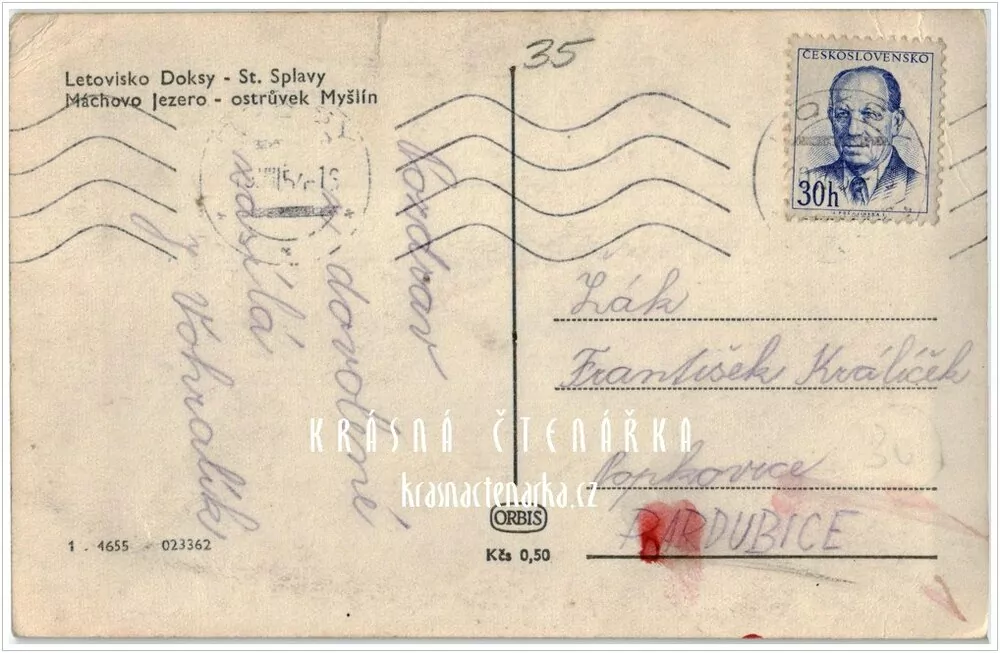 35
ČESKOSLOVENSKO
30h
Letovisko Doksy - St. Splavy
Máchovo Jezero - ostrůvek Myšlín
Pozdrav
z dovolené
zasílá
J. Vohralík
Žák
František Králíček
Popkovice
PARDUBICE
KRÁSNÁ ČTENÁŘKA
krasnactenarka.cz
ORBIS
Kčs 0,50
1 . 4655 023362